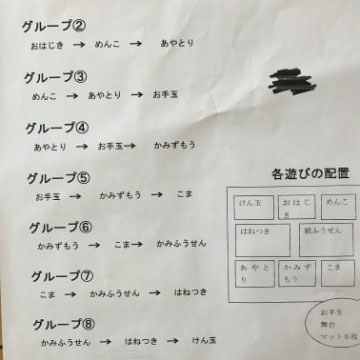 グループ②
おはじき → めんこ → あやとり
グループ③
めんこ → あやとり → お手玉
グループ④
あやとり → お手玉→ かみずもう
グループ⑤
お手玉 → かみずもう → こま
グループ⑥
かみずもう → こま→ かみふうせん
グループ⑦
こま → かみふうせん → はねつき
グループ⑧
かみふうせん → はねつき → けん玉
各遊びの配置
けん玉
おはじ
き
めんこ
はねつき
紙ふうせん
あやと
り
かみず
もう
こま
お手玉
舞台
マット6枚